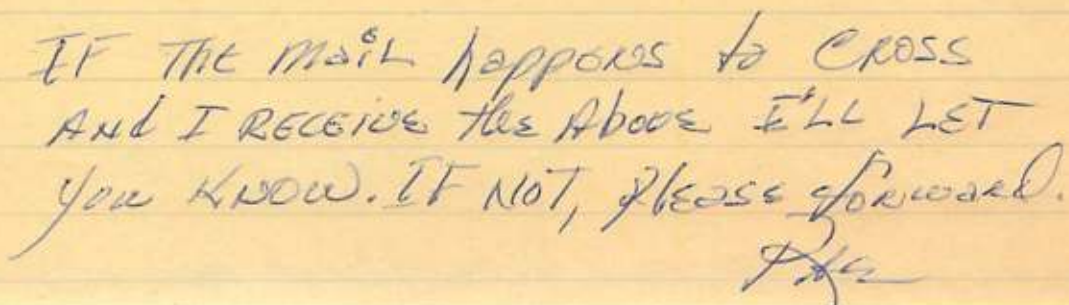 IF The Mail happens to CROSS
ANd I RECEIVE the Above I'LL LET
you KNOW. IF NOT, please forward.